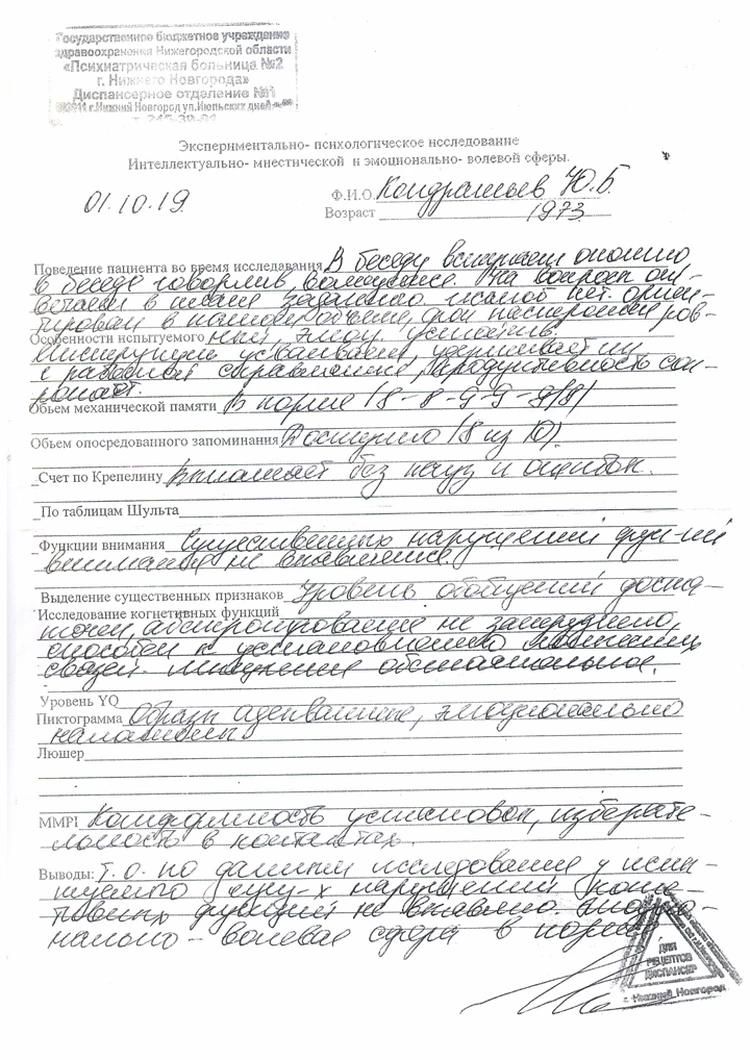 Государственное бюджетное учреждение
здравоохранения Нижегородской области
«Психиатрическая больница №2
г. Нижнего Новгорода»
Диспансерное отделение №1
г.Нижний Новгород ул.Июльских дней
Экспериментально- психологическое исследование
Интеллектуально- мнестической и эмоционально- волевой сферы.
01.10.19
Ф.И.О. Кондратьев Ю.Б.
Возраст 1973
Поведение пациента во время исследавания В беседу вступает охотно
в беседе говорлив, На вопросы от-
вечает в плане заданного жалоб нет. ориен-
тирован в полном объеме, фон настроения ров-
Особенности испытуемого ный, эмоц. устойчив.
Инструкции усваивает, удерживает их
с работой справляется, продуктивность сох-
раняет.
Обьем механической памяти В норме (8-8-9-9-9/8/
Обьем опосредованного запоминания Доступно (8 из 10).
Счет по Крепелину Выполняет без пауз и ошибок.
По таблицам Шульта
Функции внимания Существенных нарушений функций
внимания не выявляется.
Выделение существенных признаков Уровень обобщений доста-
Исследование когнетивных функций
точен, абстрагирование не затруднено,
способен к установлению логических
связей. Мышление обстоятельное.
Уровень YQ
Пиктограмма Образы адекватные, эмоционально
наполнены
Люшер
MMPI Конформность установок, избирате-
льность в контактах.
Выводы: Т.О. по данным исследования у испы-
туемого сущ-х нарушений когни-
тивных функций не выявлено эмоцио-
нально-волевая сфера в норме
ДЛЯ
РЕЦЕПТОВ
ДИСПАНСЕР
г. Нижний Новгород